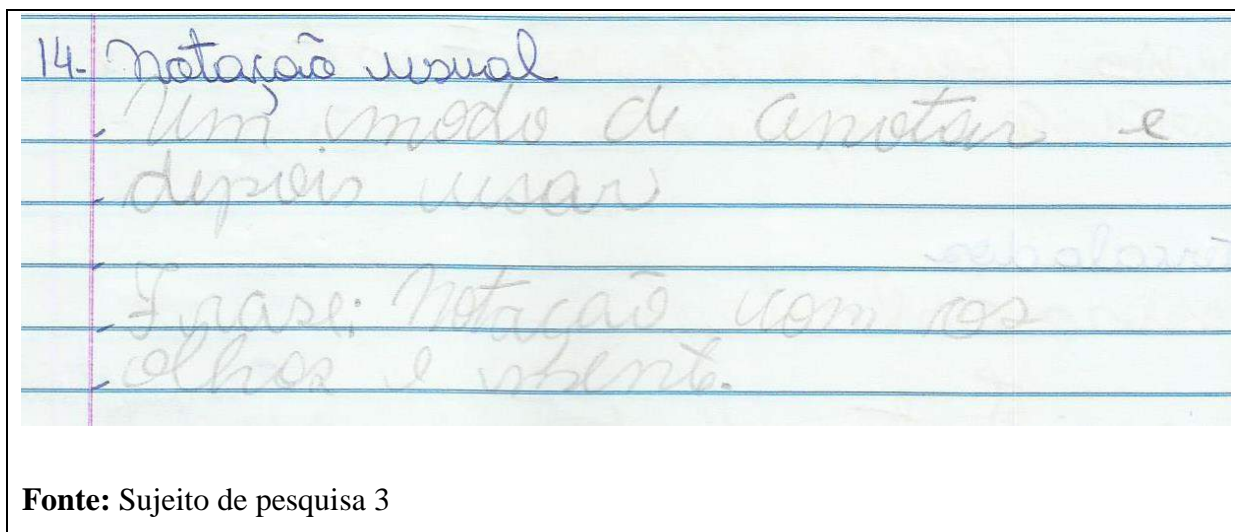 14- Notação usual
Um modo de anotar e
depois usar
Frase: Notação com os
olhos e mente.
Fonte: Sujeito de pesquisa 3